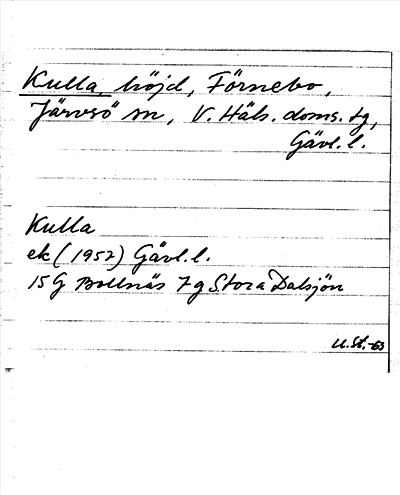 Kulla höjd, Förnebo,
Järvsö sn, V. Häls. doms. tg,
Gävl. l.
Kulla
ek (1952) Gävl. l.
15 G Bollnäs 7 g Stora Dalsjön
U.St.-63